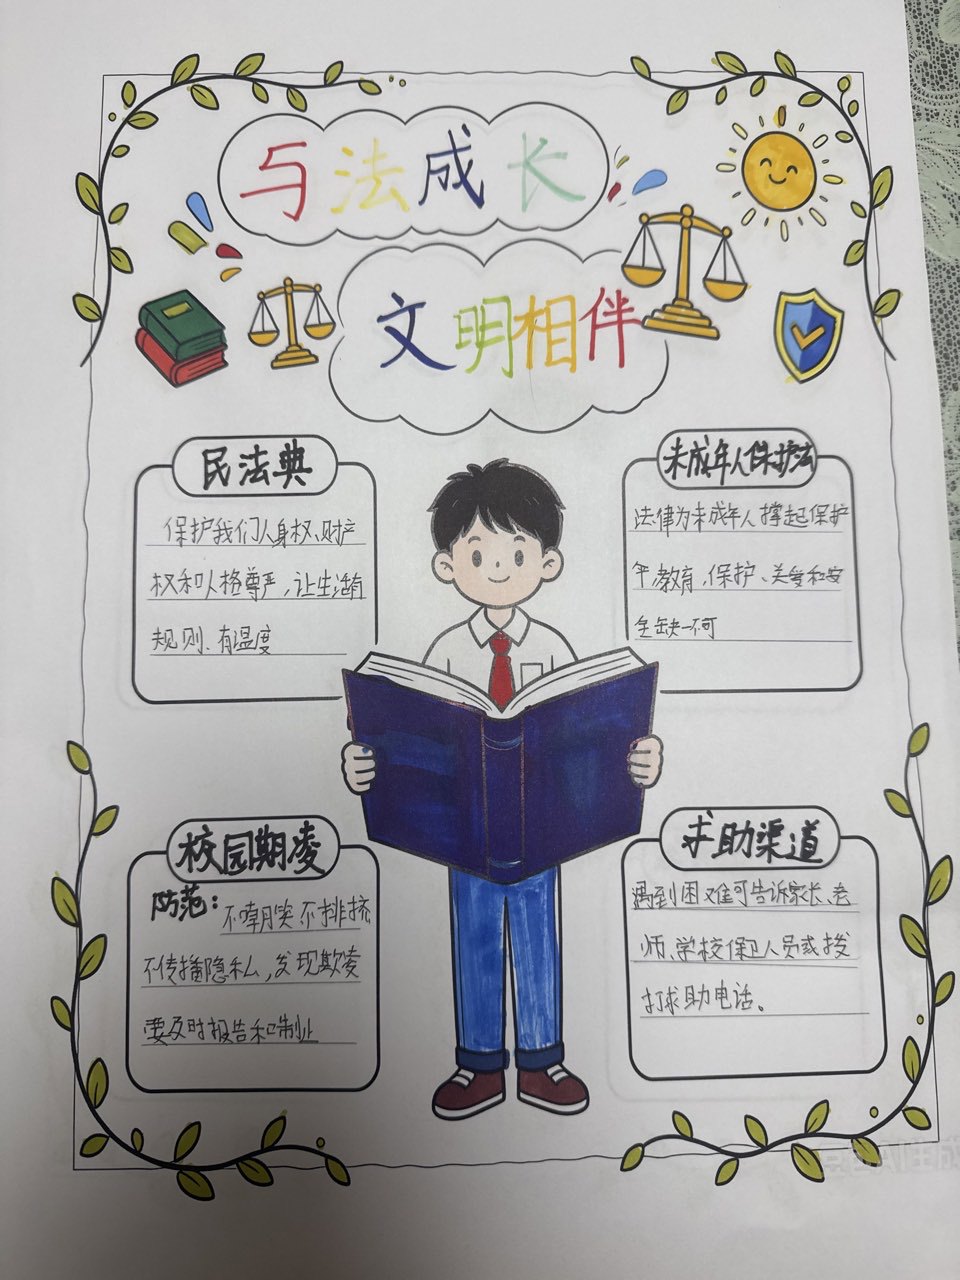 与法成长
文明相伴
民法典
保护我们人身权、财产
权和人格尊严,让生活有
规则、有温度
未成年人保护法
法律为未成年人撑起保护
伞,教育,保护、关爱和安
全缺一不可
校园期凌
防范:不嘲笑不排挤
不传播隐私,发现欺凌
要及时报告和制止
求助渠道
遇到困难可告诉家长、老
师、学校保卫人员或拨
打求助电话。